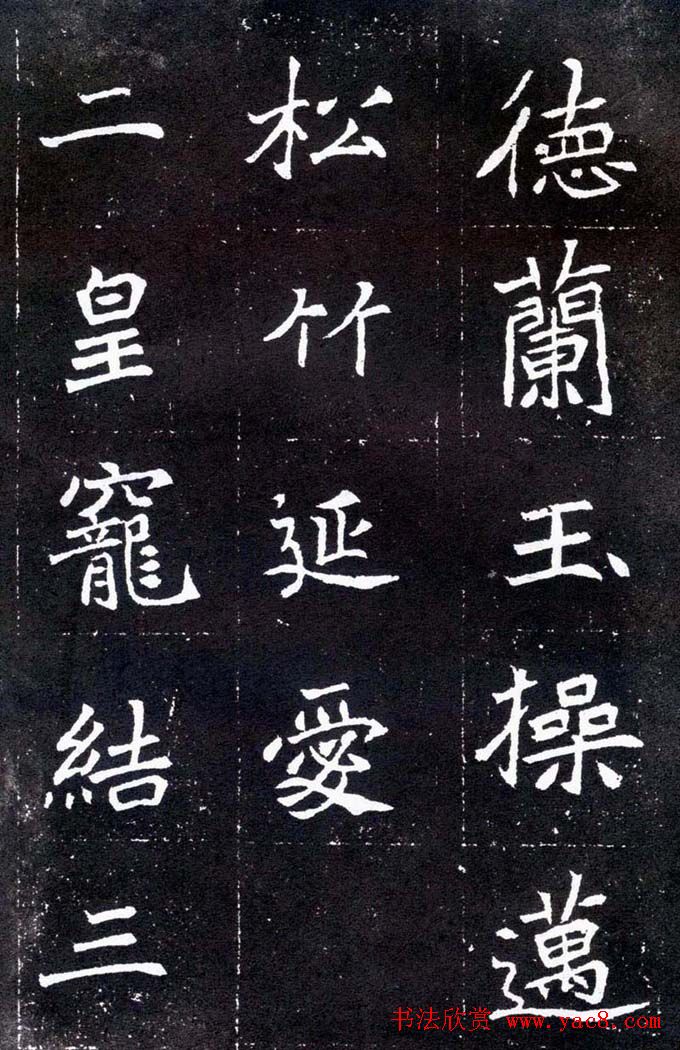 德蘭玉操邁
松竹延愛
二皇寵結三
书法欣赏 www.yac8.com